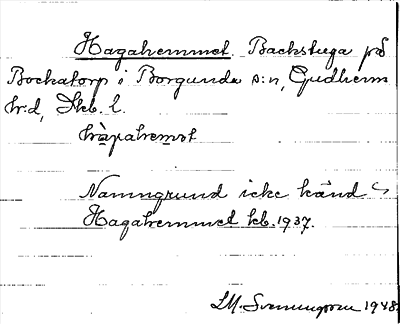 Hagahemmet. Backstuga på
Bockatorp i Borgunda s:n, Gudhem
h:d, Skb. l.
hàgahemet
Namngrund icke känd
Hagahemmet kb. 1937.
1948.